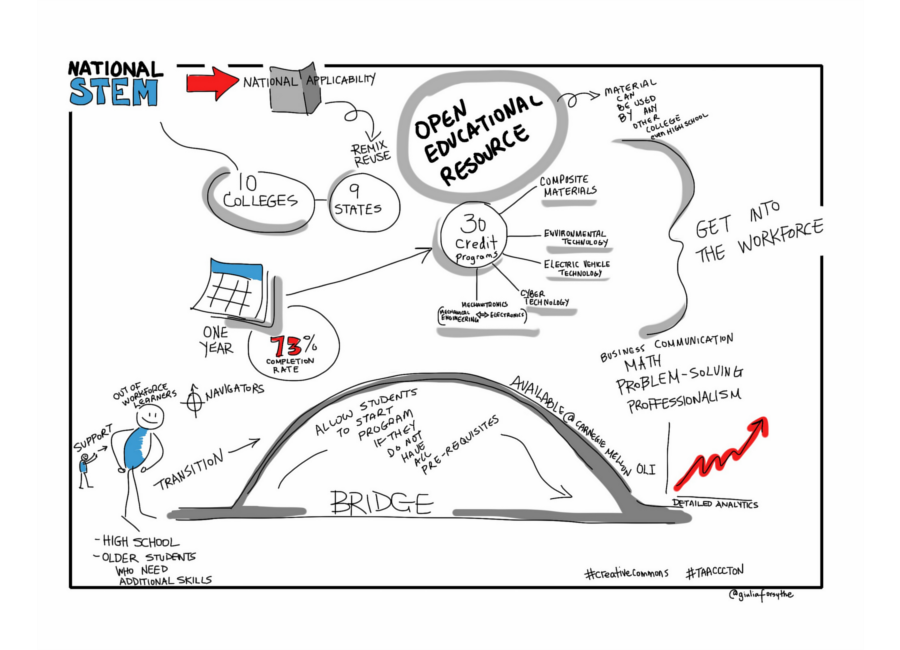 NATIONAL
STEM
NATIONAL APPLICABILITY
REMIX
REUSE
10
COLLEGES
9
STATES
OPEN
EDUCATIONAL
RESOURCE
MATERIAL
CAN
BE USED
BY ANY
OTHER
COLLEGE
even HIGH SCHOOL
30
credit
programs
COMPOSITE
MATERIALS
ENVIRONMENTAL
TECHNOLOGY
ELECTRIC VEHICLE
TECHNOLOGY
CYBER
TECHNOLOGY
MECHANTRONICS
(MECHANICAL
ENGINEERING <=> ELECTRONICS)
GET INTO
THE WORKFORCE
ONE
YEAR
73%
COMPLETION
RATE
BUSINESS COMMUNICATION
MATH
PROBLEM-SOLVING
PROFFESSIONALISM
OUT OF
WORKFORCE
LEARNERS
NAVIGATORS
SUPPORT
TRANSITION
ALLOW STUDENTS
TO START
PROGRAM
IF THEY
DO NOT
HAVE
ALL
PRE-REQUISITES
AVAILABLE @ CARNEGIE MELLON OLI
BRIDGE
DETAILED ANALYTICS
- HIGH SCHOOL
- OLDER STUDENTS
WHO NEED
ADDITIONAL SKILLS
#creativecommons #TAACCCTON
@giuliaforsythe